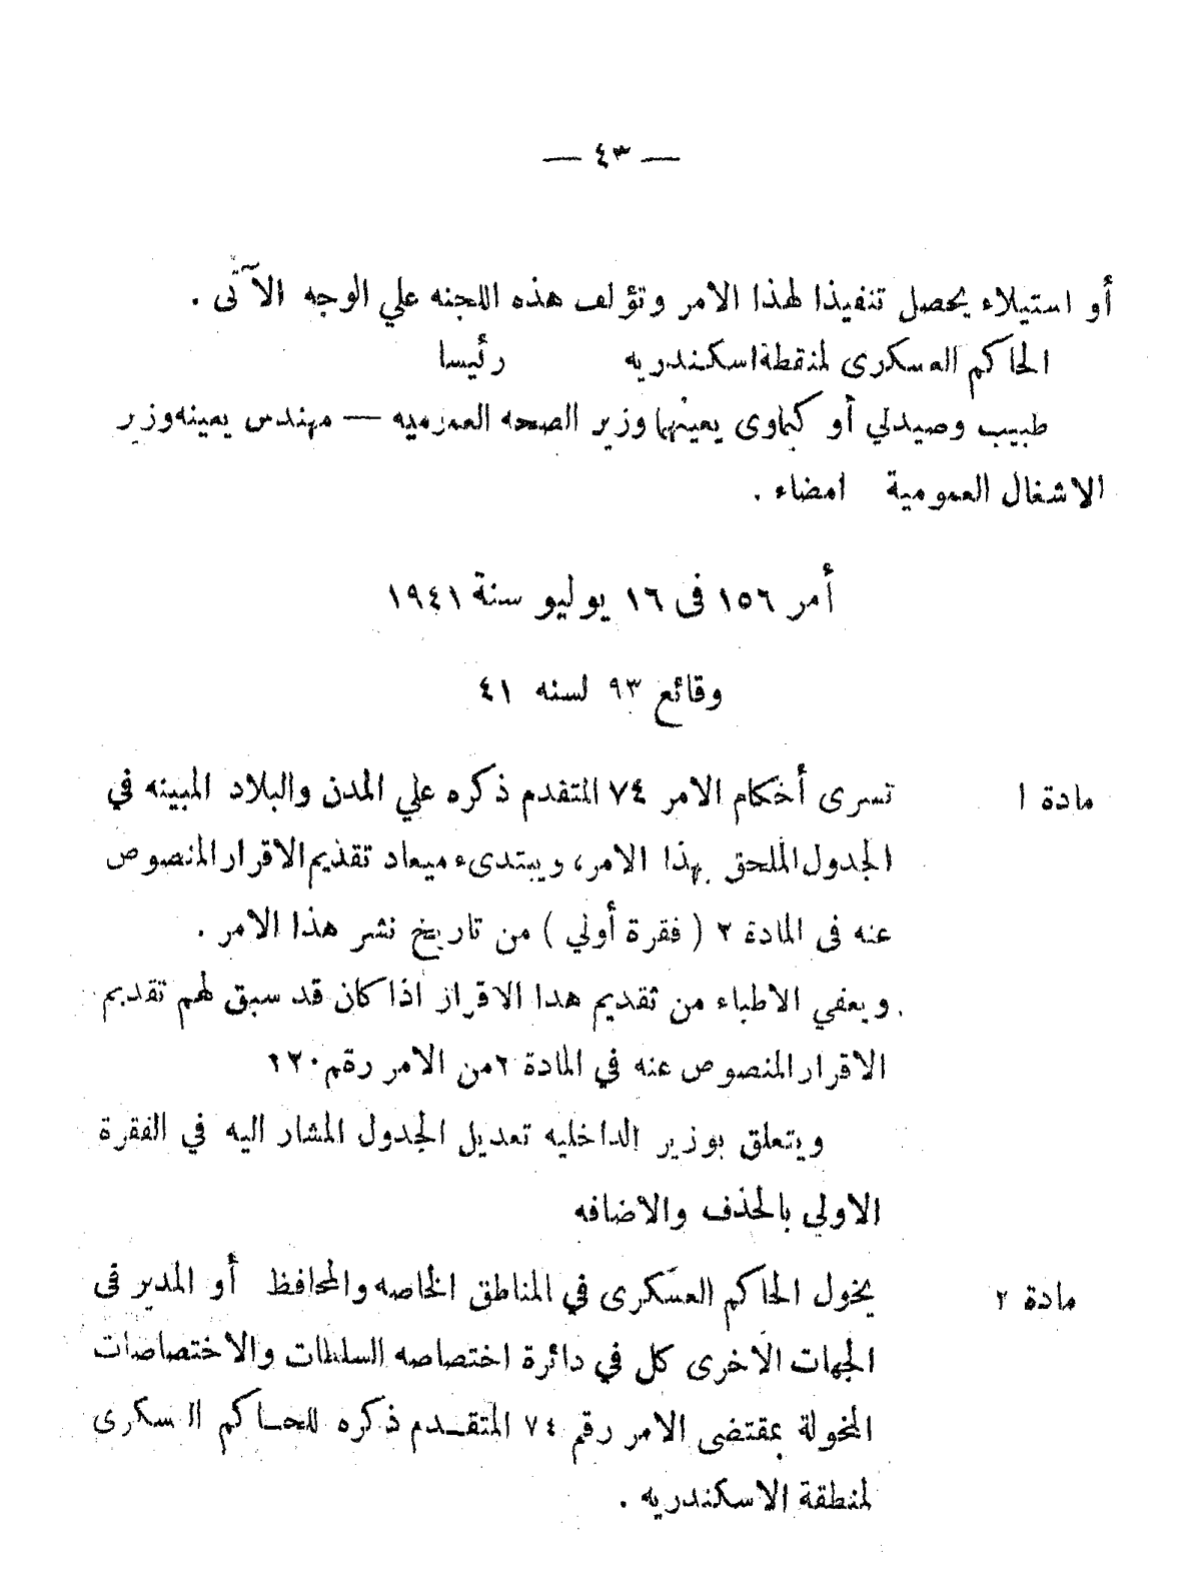 — ٤٣ —
أو استيلاء يحصل تنفيذا لهذا الامر وتؤلف هذه اللجنه علي الوجه الآتى .
الحاكم العسكرى لمنقطة اسكندريه رئيسا
طبيب وصيدلي أو كيماوى يعينهما وزير الصحه العمرميه — مهندس يعينه وزير
الاشغال العمومية امضاء .
أمر ١٥٦ فى ١٦ يوليو سنة ١٩٤١
وقائع ٩٣ لسنه ٤١
مادة ١ تسرى أحكام الامر ٧٤ المتفدم ذكره علي المدن والبلاد المبينه في
الجدول الملحق بهذا الامر، ويبتدىء ميعاد تقذيم الاقرار المنصوص
عنه فى المادة ٢ ( فقرة أولي ) من تاريخ نشر هذا الامر .
ويعفي الاطباء من ثقديم هدا الاقراز اذا كان قد سبق لهم تقديم
الاقرار المنصوص عنه في المادة ٢ من الامر رقم ١٢٠
ويتعلق بوزير الداخليه تعديل الجدول المشار اليه في الفقرة
الاولي بالحذف والاضافه
مادة ٢ يخول الحاكم العسكرى في المناطق الخاصه والمحافظ أو المدير فى
الجهات الأخرى كل في دائرة اختصاصه السلطات والاختصاصات
المخولة بمقتضى الامر رقم ٧٤ المتقـدم ذكره للحـاكم السكرى
لمنطقة الاسكندريه .